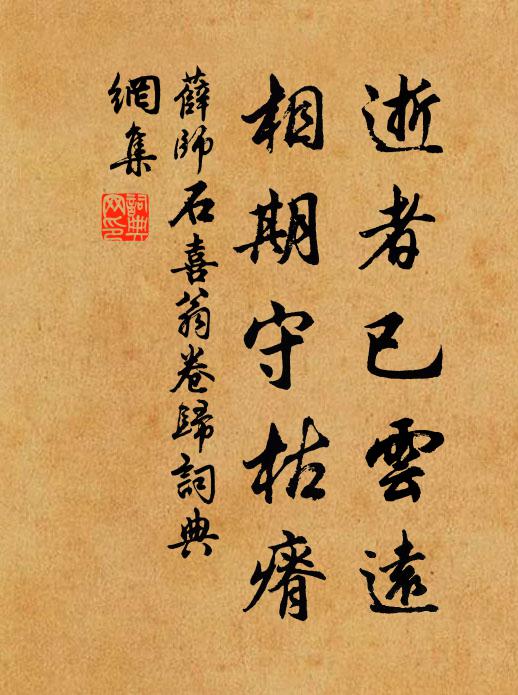 逝者已雲遠
相期守枯瘠
薛師石喜翁卷歸詞典
網集
詞典網印